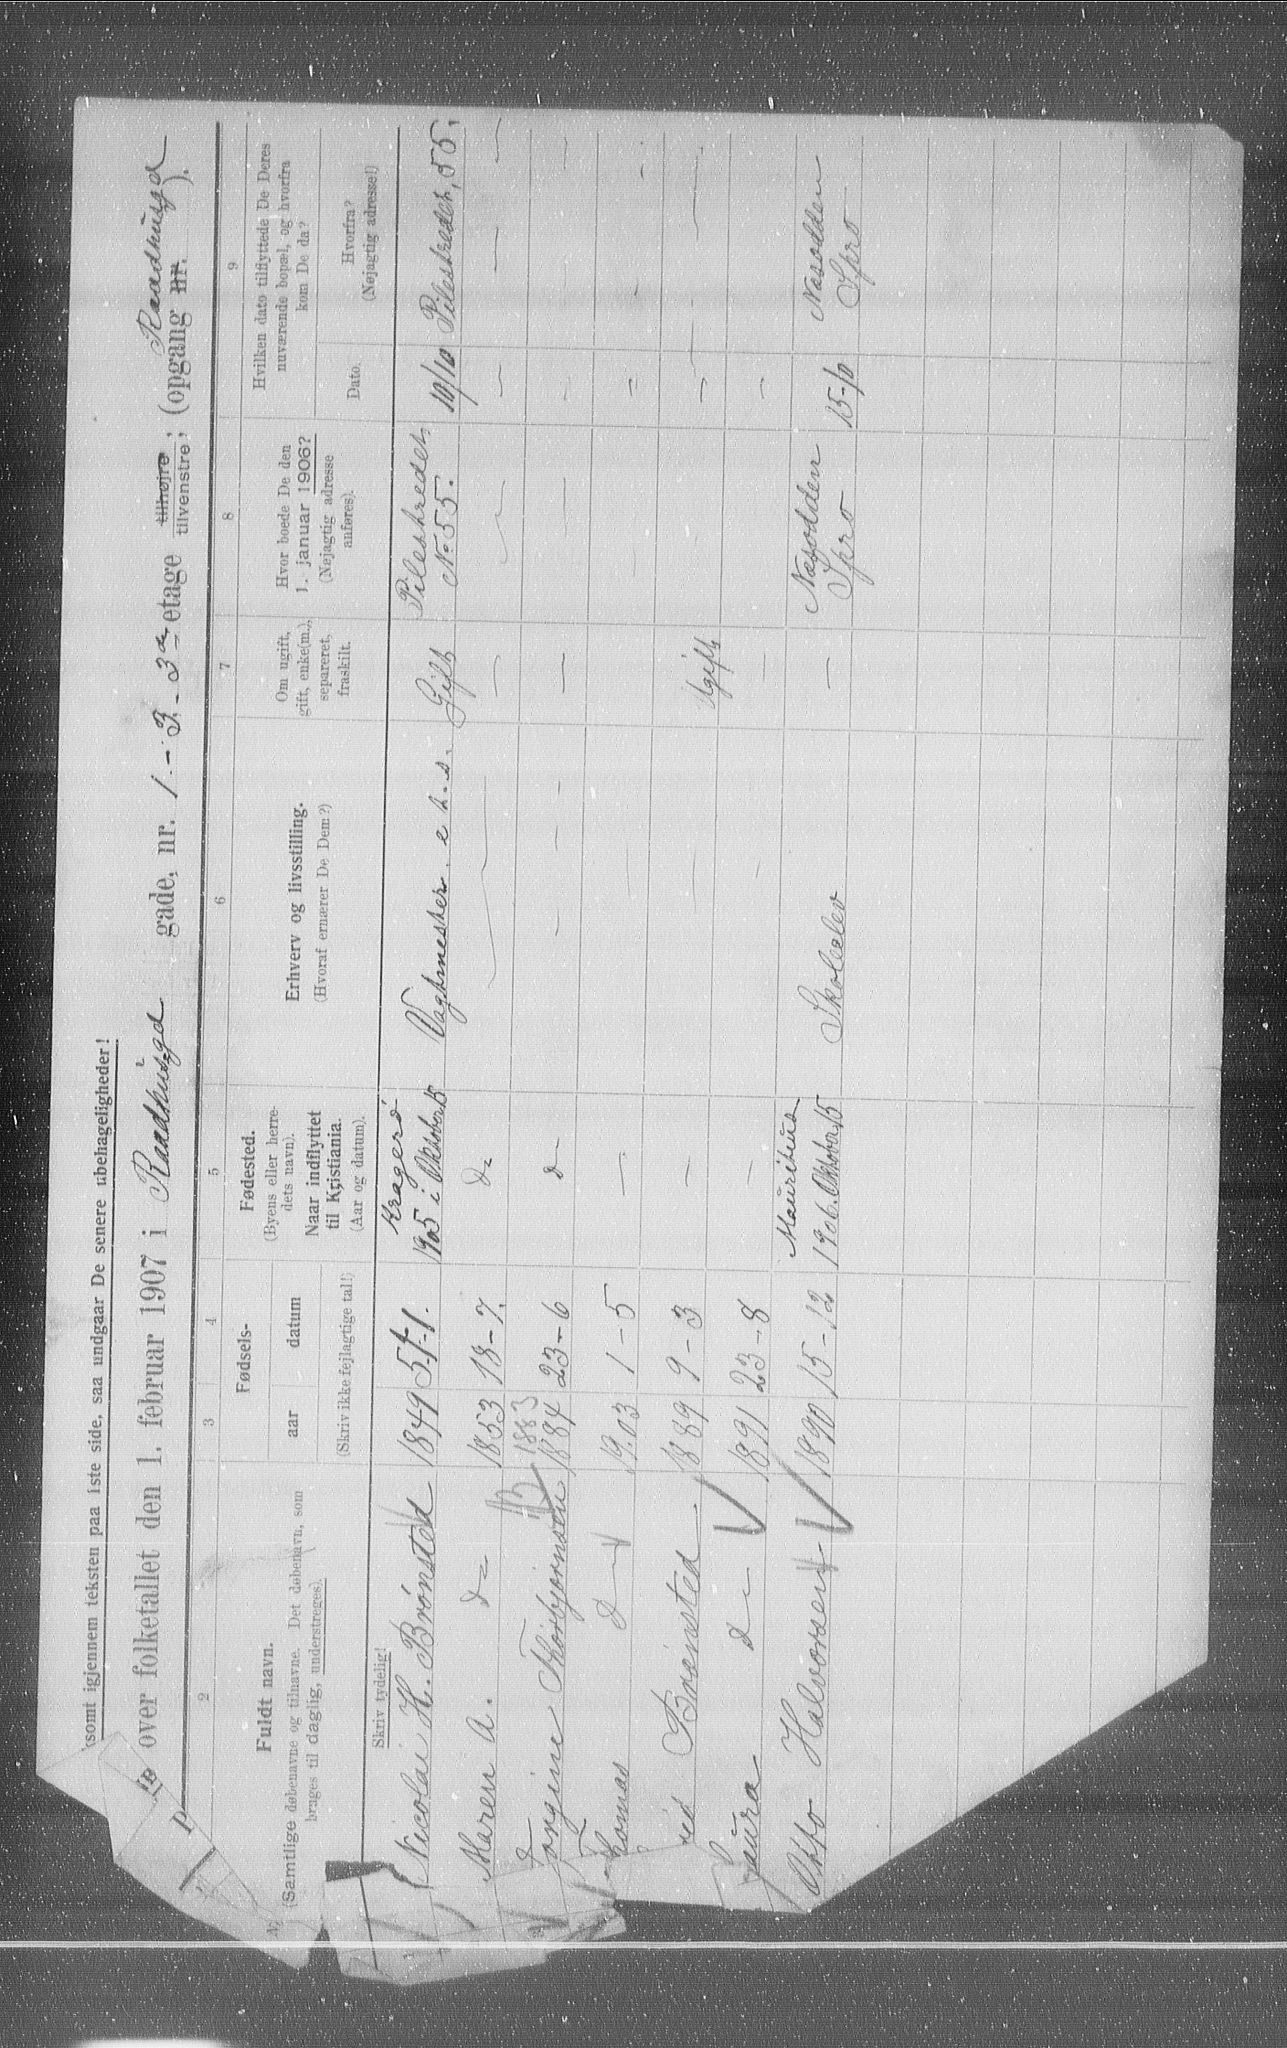 (somt igjennem teksten paa 1ste side, saa undgaar De senere ubehageligheder!
over folketallet den 1. februar 1907 i Raadhusgd gade, nr. 1 - 3 - 3 etage tilhøjre tilvenstre; (opgang nr. Raadhusgd).
2 3 4 5 6 7 8 9
Fuldt navn.
(Samtlige døbenavne og tilnavne. Det døbenavn, som
bruges til daglig, understreges).
Skriv tydelig!
Fødsels-
aar datum
(Skriv ikke fejlagtige tal!)
Fødested.
(Byens eller herre-
dets navn).
Naar indflyttet
til Kristiania.
(Aar og datum).
Erhverv og livsstilling.
(Hvoraf ernærer De Dem?)
Om ugift,
gift, enke(m.),
separeret,
fraskilt.
Hvor boede De den
1. januar 1906?
(Nøjagtig adresse
anføres).
Hvilken dato tilflyttede De Deres
nuværende bopæl, og hvorfra
kom De da?
Dato.
Hvorfra?
(Nøjagtig adresse!)
Nicolai H. Brönsted 1849 5-1. Kragerö 1905 i Oktober 15 Vagtmester e h. s. Gift Pilestredet No 55. 10/10 Pilestredet, 55,
Maren A. d= 1853 18-7. d= — — — — —
1883
Jongine Thorbjørnsen 1884 23-6 d — — — — — — — —
Thomas d — 1903 1-5 — — — = - -
Brønsted 1889 9-3 — — Ugift — —
Laura d — 1891 23-8 — — — —
Otto Halvorsen 1890 15-12 Mauritius 1906. Oktober 15 Skoleelev — Næsodden Spro 15-10 Næsodden Spro